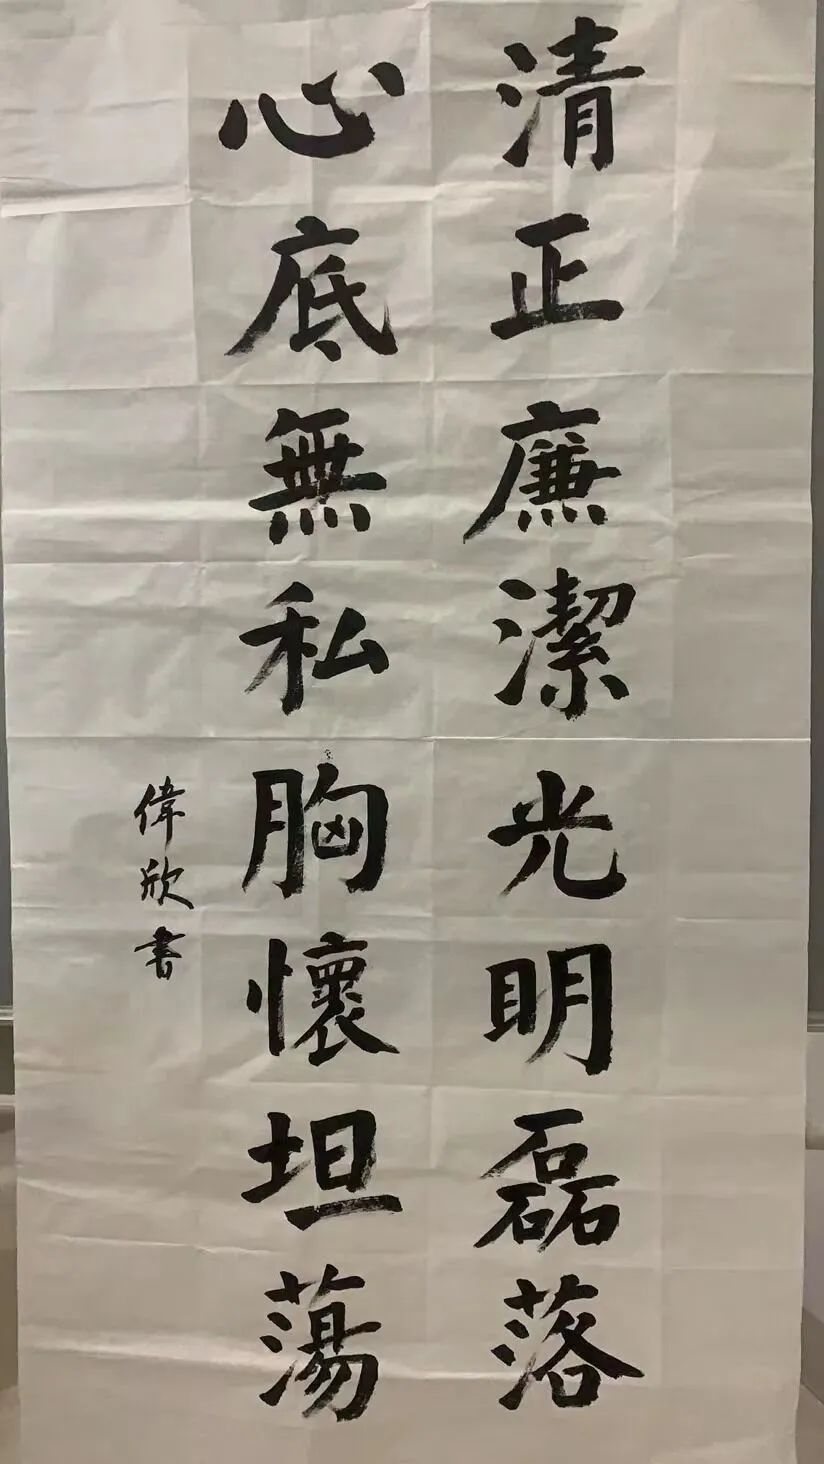 清正廉潔光明磊落
心底無私胸懷坦蕩
偉欣書